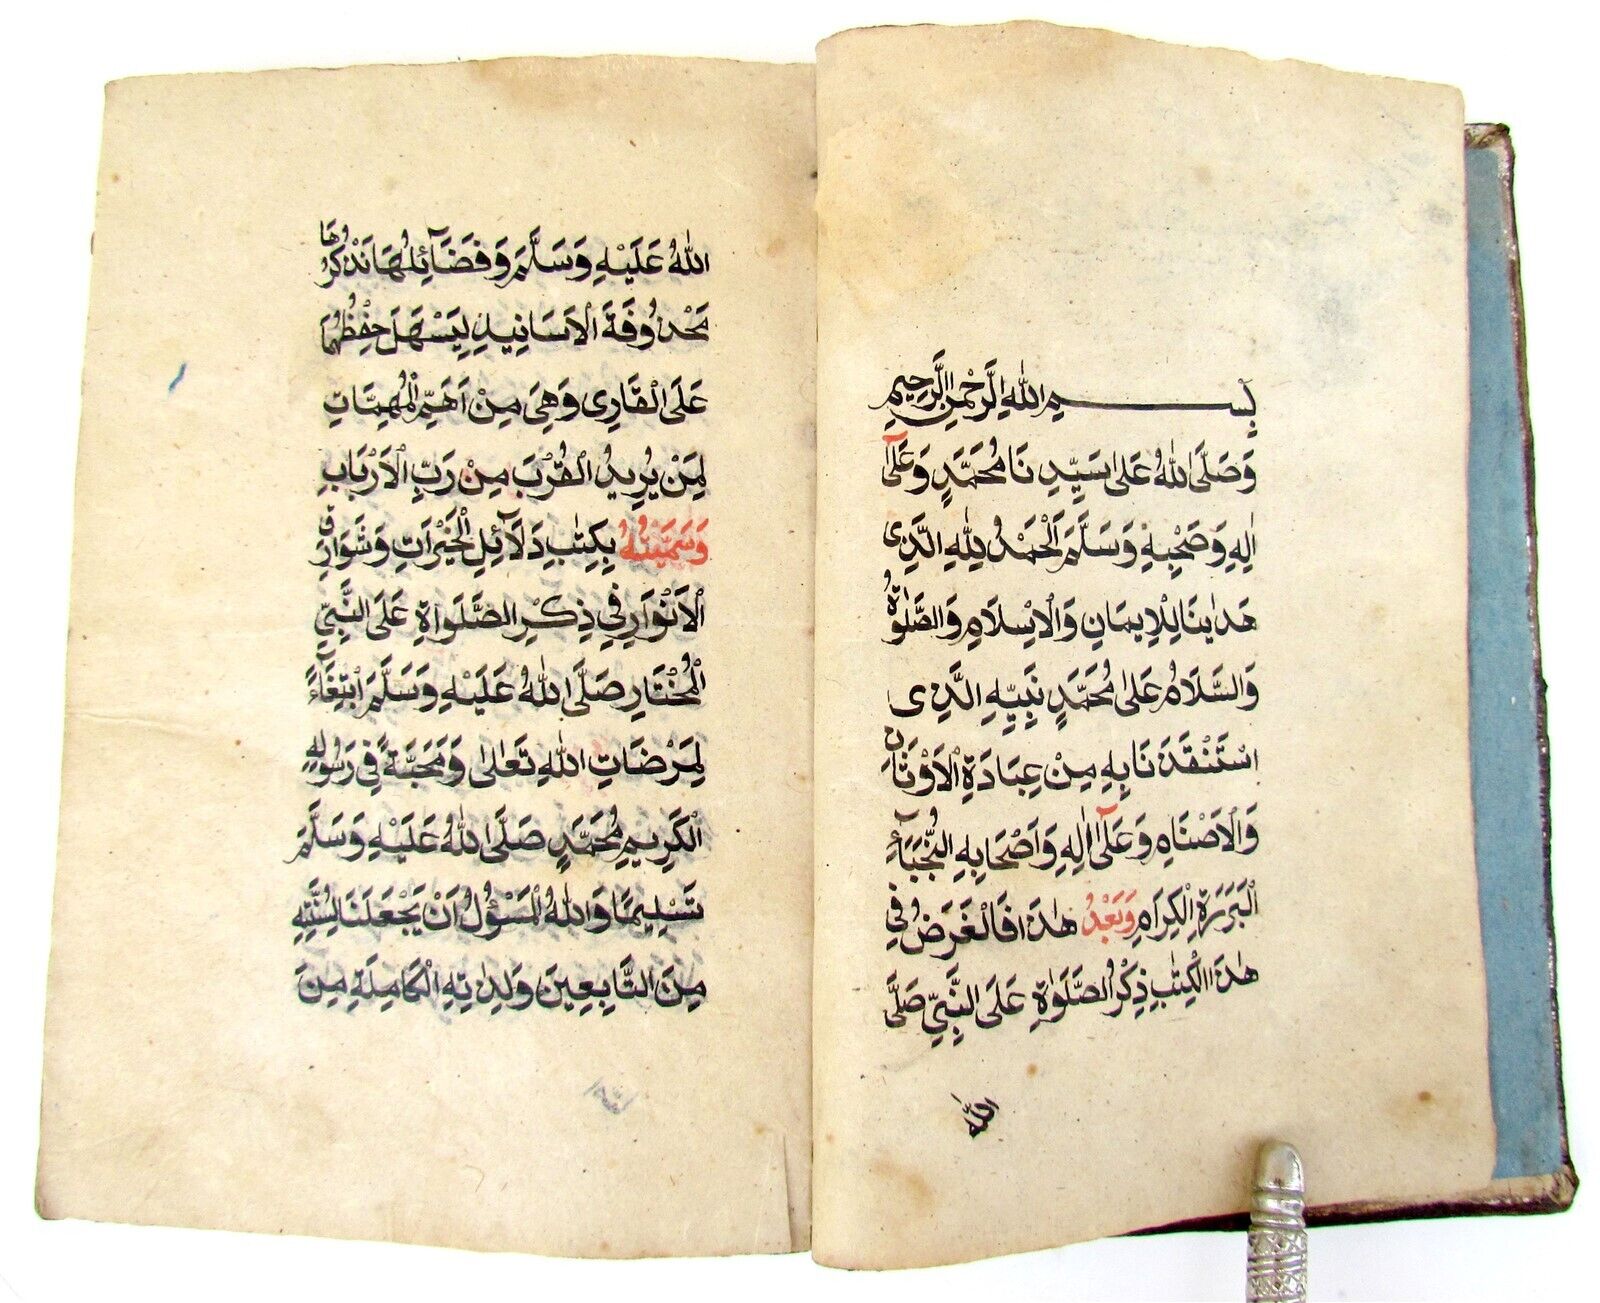 بِسْمِ اللهِ الرَّحْمٰنِ الرَّحِيمِ
وَصَلَّى اللهُ عَلىٰ سَيِّدِنَا مُحَمَّدٍ وَعَلىٰٓ
اٰلِهِ وَصَحْبِهِ وَسَلَّمَ اَلْحَمْدُ لِلّٰهِ الَّذِى
هَدٰىنَا لِلْاِيمَانِ وَالْاِسْلَامِ وَالصَّلٰوةُ
وَالسَّلَامُ عَلىٰ مُحَمَّدٍ نَبِيِّهِ الَّذِى
اسْتَنْقَذَنَا بِهِ مِنْ عِبَادَةِ الْاَوْثَانِ
وَالْاَصْنَامِ وَعَلىٰٓ اٰلِهِ وَاَصْحَابِهِ النُّجَبَآءِ
الْبَرَرَةِ الْكِرَامِ وَبَعْدُ هٰذَا فَالْغَرَضُ فِي
هٰذَا الْكِتٰبِ ذِكْرُ الصَّلَوٰةِ عَلَى النَّبِيِّ صَلَّى
اللهُ
اللهُ عَلَيْهِ وَسَلَّمَ وَفَضَآئِلُهَا نَذْكُرُهَا
مَحْذُوفَةَ الْاَسَانِيدِ لِيَسْهَلَ حِفْظُهَا
عَلَى الْقَارِى وَهِيَ مِنْ اَهَمِّ الْمُهِمَّاتِ
لِمَنْ يُرِيدُ الْقُرْبَ مِنْ رَبِّ الْاَرْبَابِ
وَسَمَّيْتُهُ بِكِتٰبِ دَلَآئِلِ الْخَيْرَاتِ وَشَوَارِقِ
الْاَنْوَارِ فِي ذِكْرِ الصَّلَوَاةِ عَلَى النَّبِيِّ
الْمُخْتَارِ صَلَّى اللهُ عَلَيْهِ وَسَلَّمَ ابْتِغَآءً
لِمَرْضَاتِ اللهِ تَعَالىٰ وَمَحَبَّةً فِي رَسُولِهِ
الْكَرِيمِ مُحَمَّدٍ صَلَّى اللهُ عَلَيْهِ وَسَلَّمَ
تَسْلِيمًا وَاللهُ الْمَسْؤُلُ اَنْ يَجْعَلَنَا لِسُنَّتِهِ
مِنَ التَّابِعِينَ وَلِذٰاتِهِ الْكَامِلَةِ مِنَ